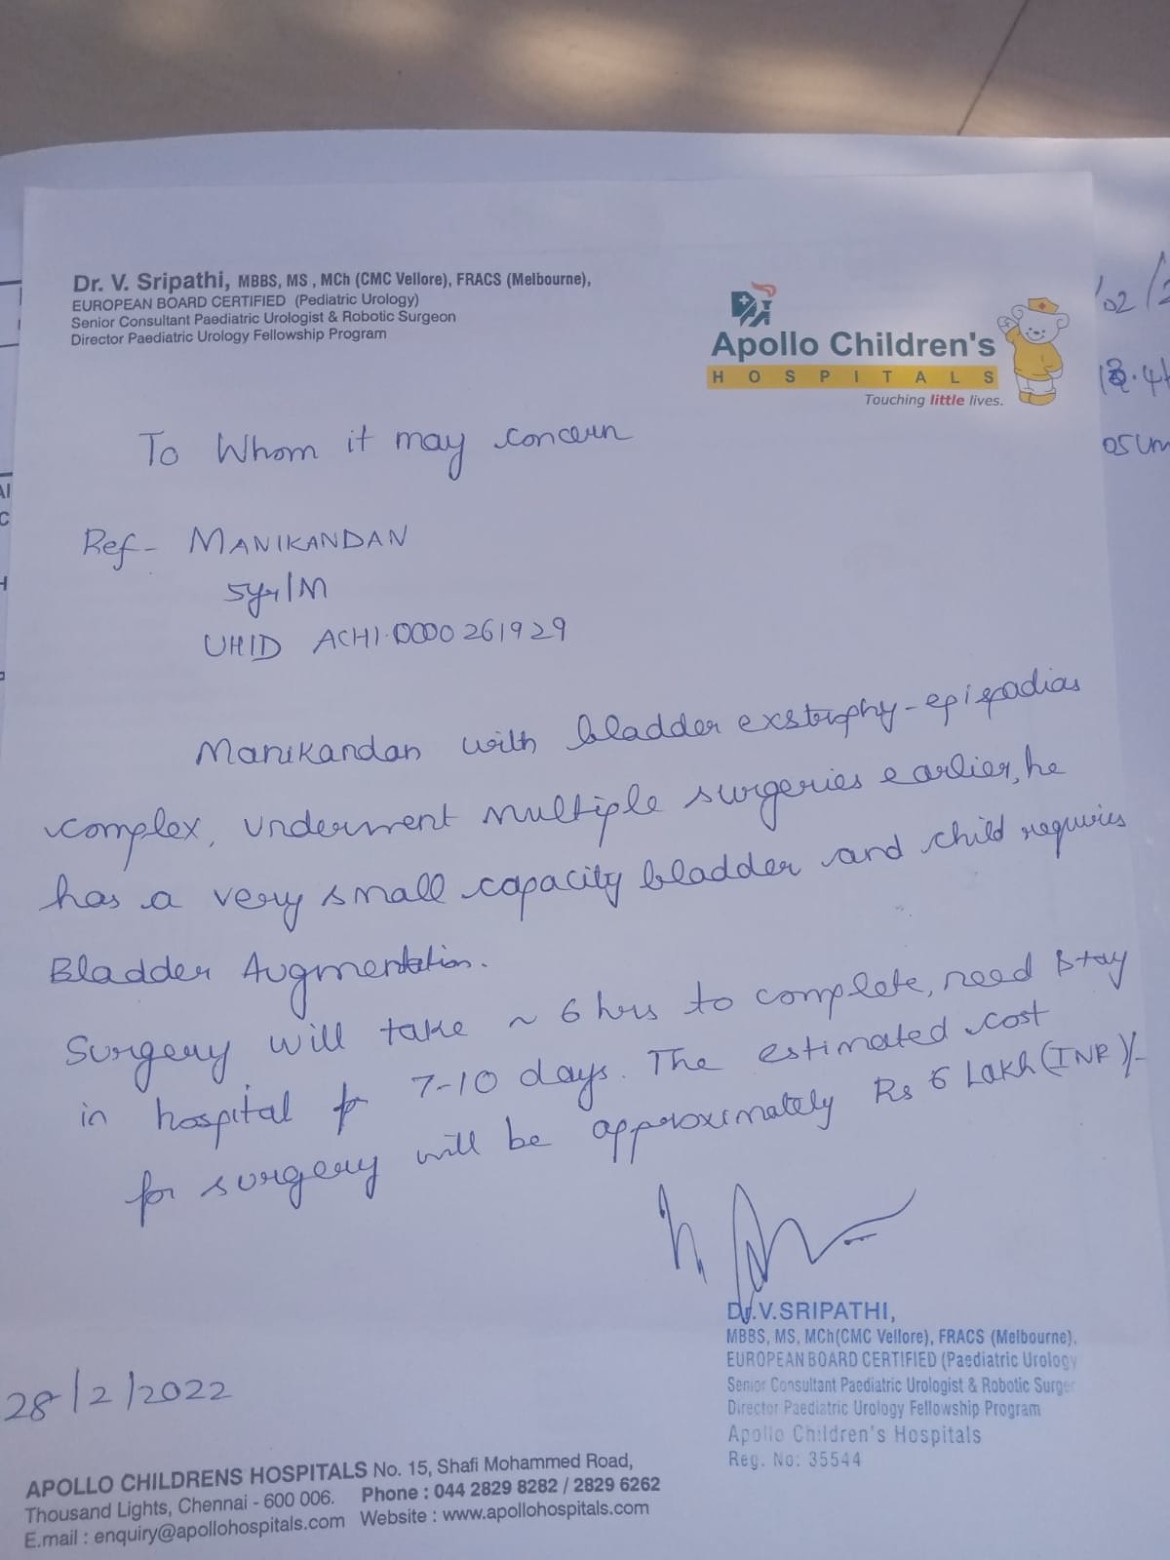 Dr. V. Sripathi, MBBS, MS , MCh (CMC Vellore), FRACS (Melbourne),
EUROPEAN BOARD CERTIFIED (Pediatric Urology)
Senior Consultant Paediatric Urologist & Robotic Surgeon
Director Paediatric Urology Fellowship Program
Apollo Children's
HOSPITALS
Touching little lives.
To Whom it may concern
Ref - MANIKANDAN
5yr/M
UHID ACH1.0000261929
Manikandan with bladder exstrophy-epispadias
complex, underwent multiple surgeries earlier, he
has a very small capacity bladder and child requries
Bladder Augmentation.
Surgery will take ~ 6 hrs to complete, need stay
in hospital for 7-10 days. The estimated cost
for surgery will be approximately Rs 6 Lakh (INR)/-
Dr.V.SRIPATHI,
MBBS, MS, MCh(CMC Vellore), FRACS (Melbourne),
EUROPEAN BOARD CERTIFIED (Paediatric Urology
Senior Consultant Paediatric Urologist & Robotic Surge
Director Paediatric Urology Fellowship Program
Apollo Children's Hospitals
Reg. No: 35544
28/2/2022
APOLLO CHILDRENS HOSPITALS No. 15, Shafi Mohammed Road,
Thousand Lights, Chennai - 600 006. Phone : 044 2829 8282 / 2829 6262
E.mail : enquiry@apollohospitals.com Website : www.apollohospitals.com